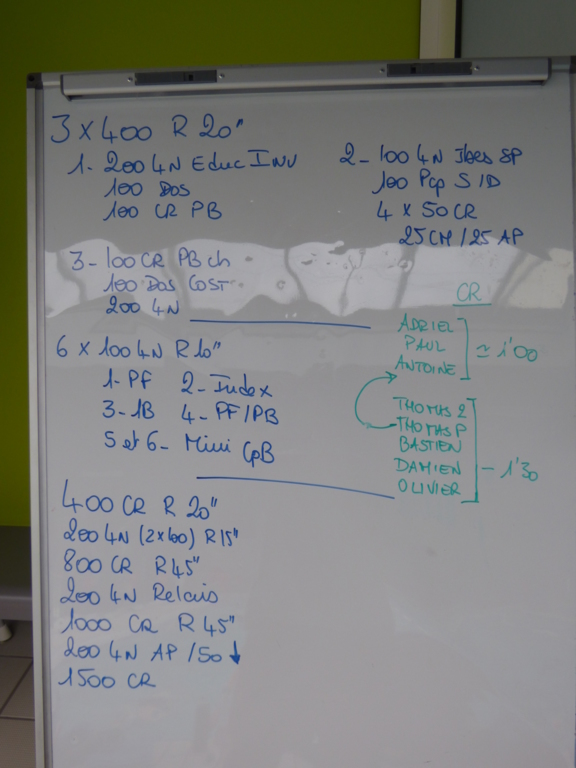 3 x 400 R 20"
1- 200 4N Educ INV
100 Dos
100 CR PB
2- 100 4N Jbes SP
100 Pcp SID
4 x 50 CR
25 CM / 25 AP
3- 100 CR PB ch
100 Dos Cost
200 4N
6 x 100 4N R 10"
1- PF 2- Index
3- 1B 4- PF/PB
5 et 6- Mini CpB
400 CR R 20"
200 4N (2x100) R 15"
800 CR R 45"
200 4N Relais
1000 CR R 45"
200 4N AP /50 ↓
1500 CR
CR
ADRIEL
PAUL
ANTOINE
≃ 1'00
THOMAS 2
THOMAS P
BASTIEN
DAMIEN
OLIVIER
- 1'30